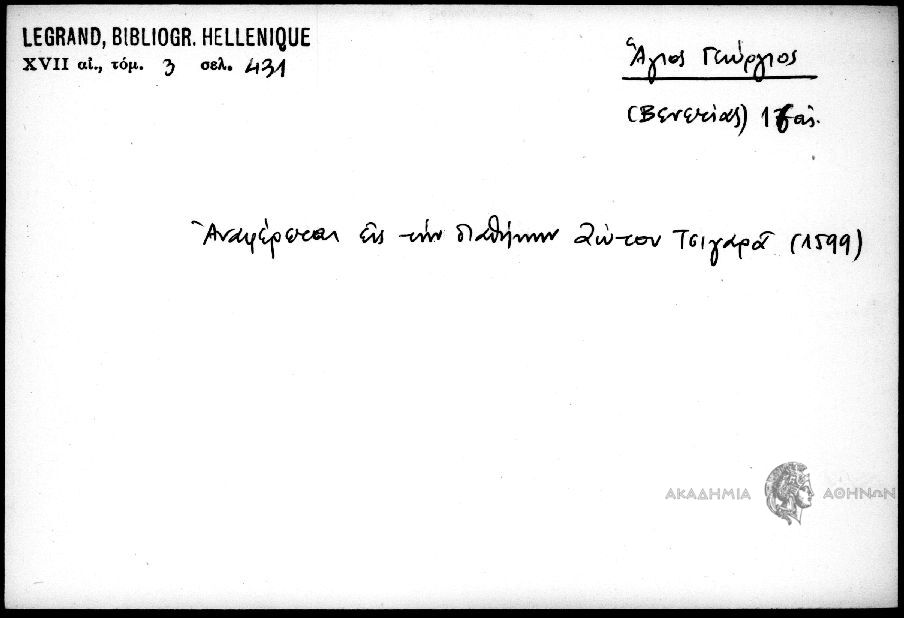 LEGRAND, BIBLIOGR. HELLENIQUE
XVII αἰ., τόμ. 3 σελ. 431
Ἅγιος Γεώργιος
(Βενετίας) 16 αἰ.
Ἀναφέρεται εἰς τὴν διαθήκην Ζώτου Τσιγαρᾶ (1599)
ΑΚΑΔΗΜΙΑ ΑΘΗΝΩΝ